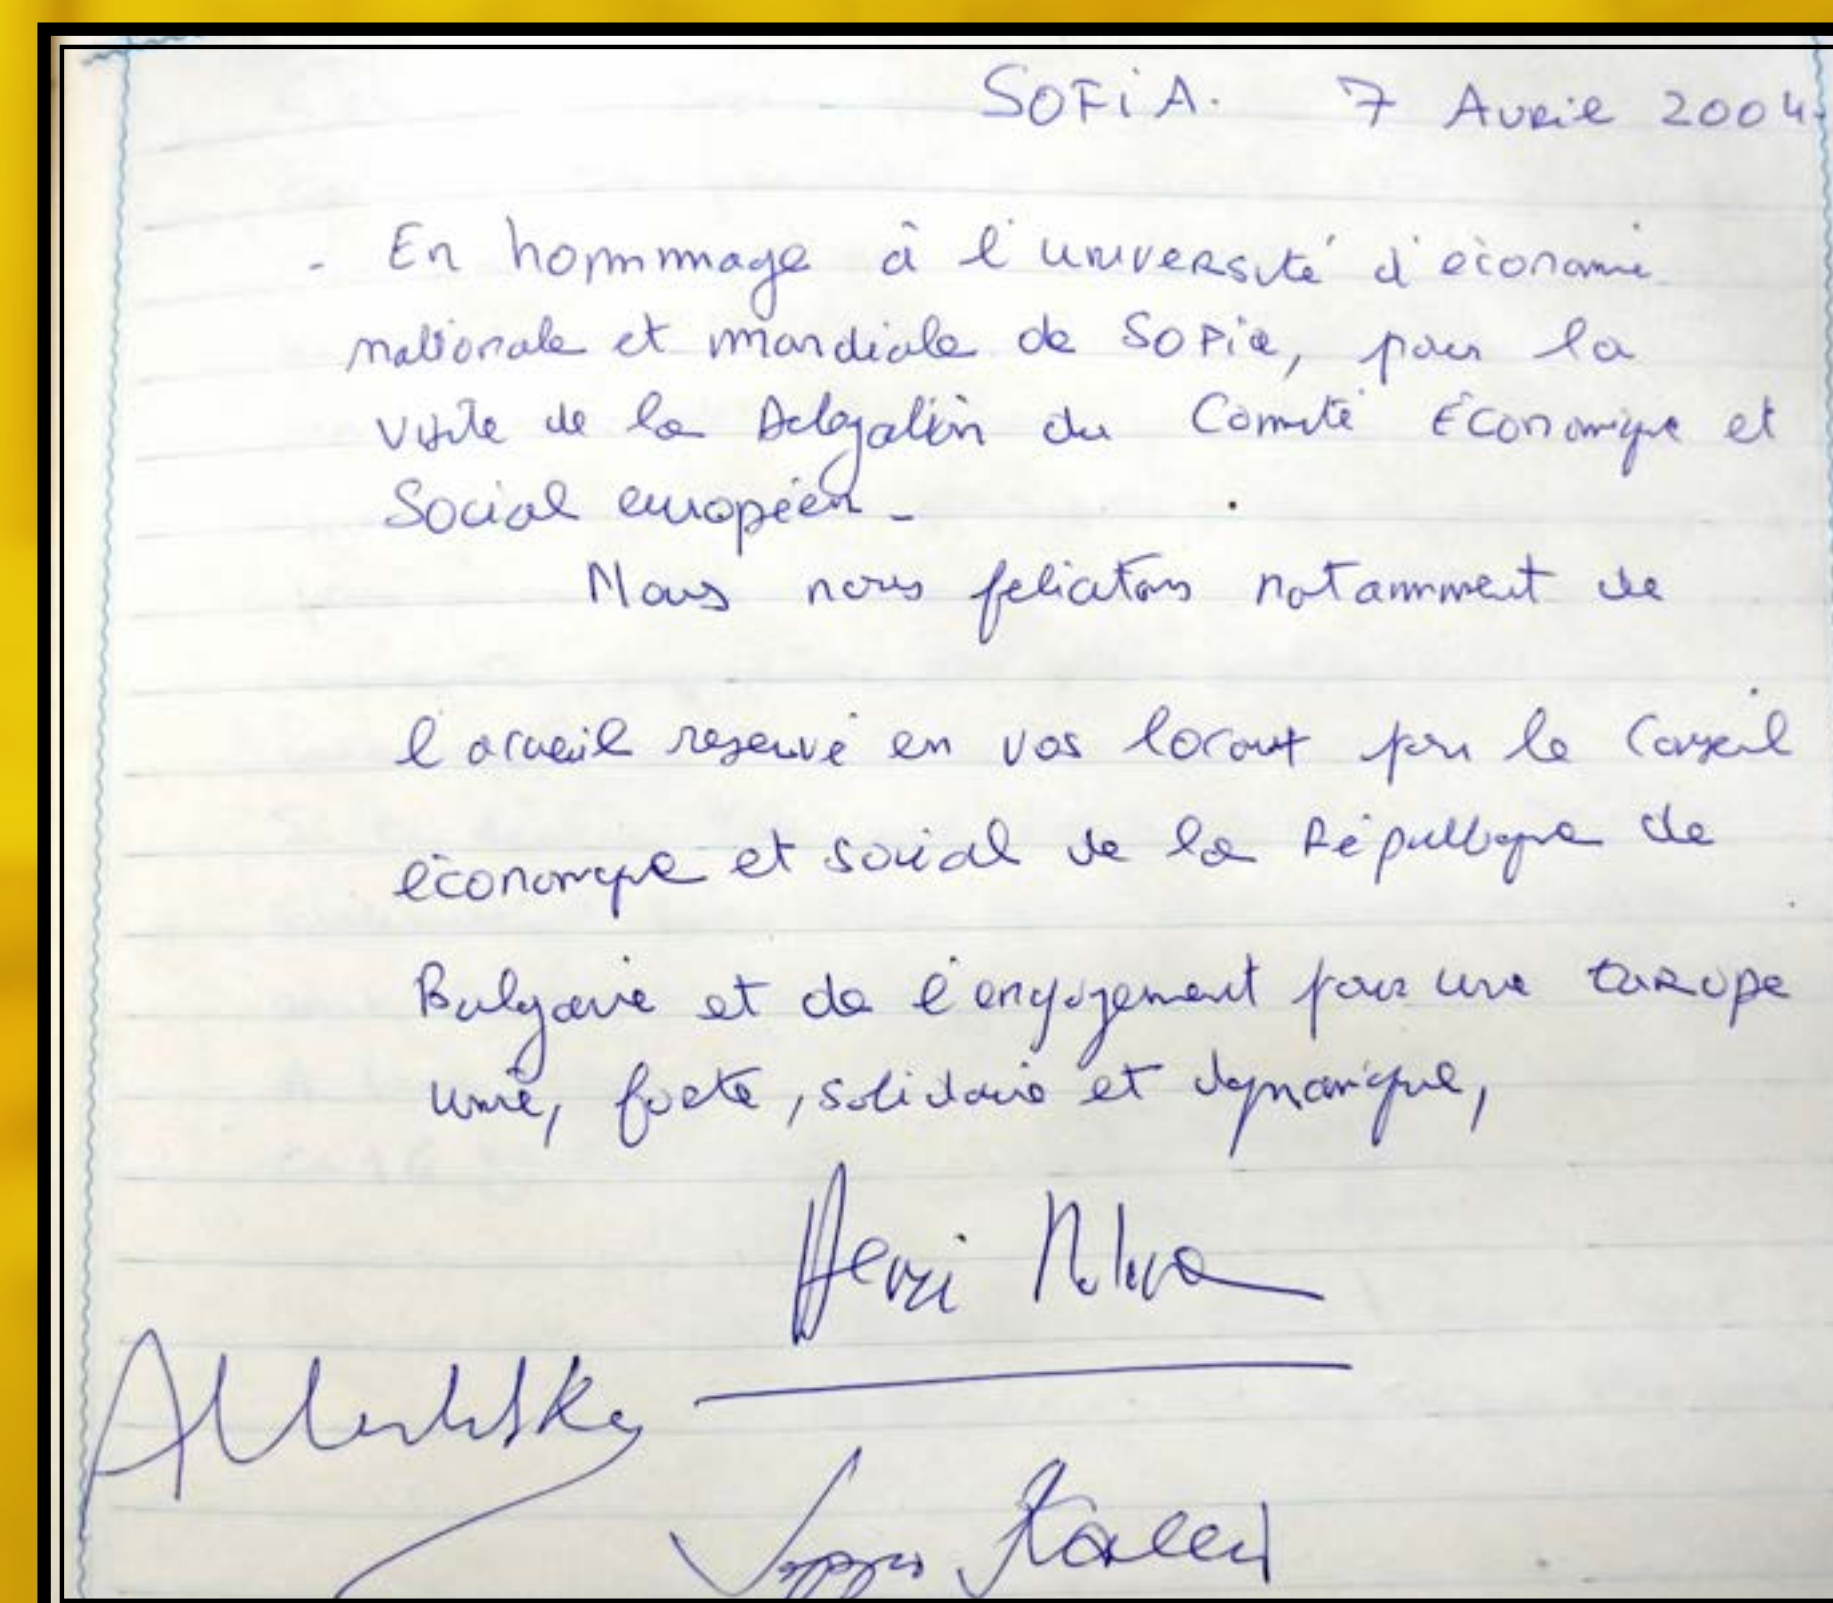 SOFiA. 7 Avril 2004.
- En hommage à l'université d'économie
nationale et mondiale de Sofia, pour la
visite de la Délégation du Comité Économique et
Social européen -
Nous nous felicitons notamment de
l'accueil reservé en vos locaux par le Conseil
économique et social de la République de
Bulgarie et de l'engagement pour une EUROPE
unie, forte, solidaire et dynamique,
Henri